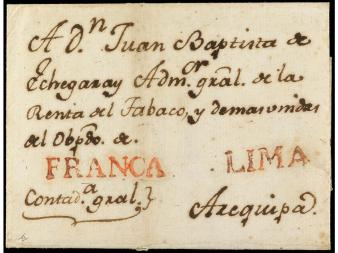 A Dⁿ Juan Baptista de
Echegaray Admᵒʳ gral. de la
Renta del Tabaco, y demas unidas
del Obpdo. de.
FRANCA LIMA
Contadᵃ gral. Arequipa.